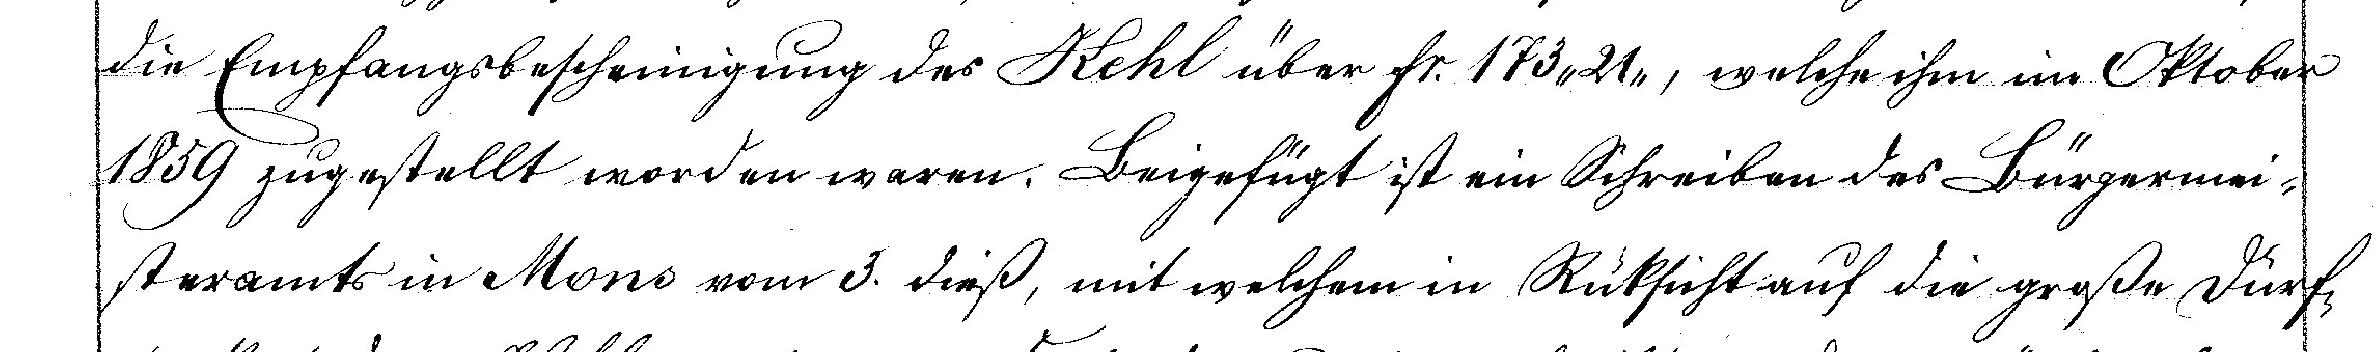 die Empfangsbescheinigung des Kehl über fr. 173„21„, welche ihm im Oktober
1859 zugestellt worden waren. Beigefügt ist ein Schreiben des Bürgermei-
steramts in Mons vom 3. dieß, mit welchem in Rüksicht auf die große Dürf-